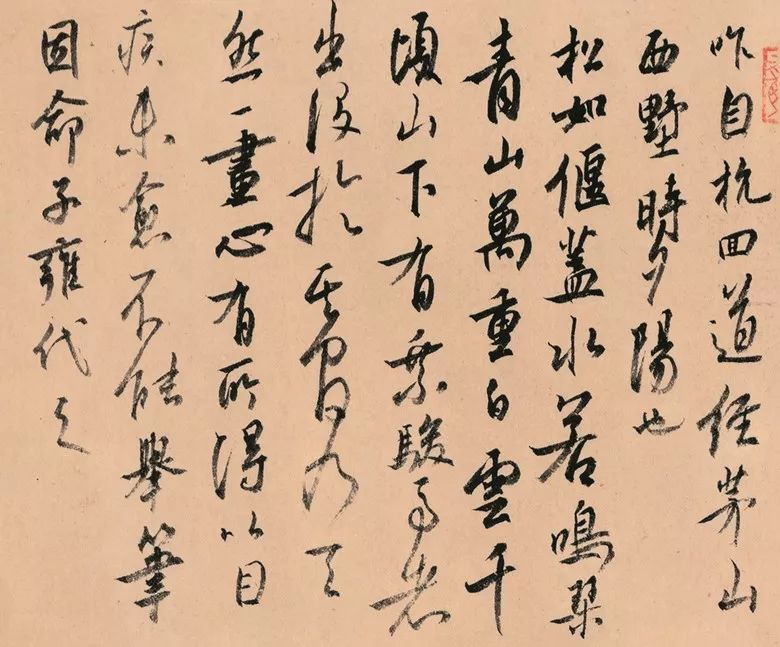 昨自杭回道經茅山
西墅時夕陽也
松如偃蓋水若鳴琹
青山萬重白雲千
頃山下有乗駿馬者
出没於其間乃天
然一畫心有所得以目
疾未愈不能舉筆
因命子雍代之